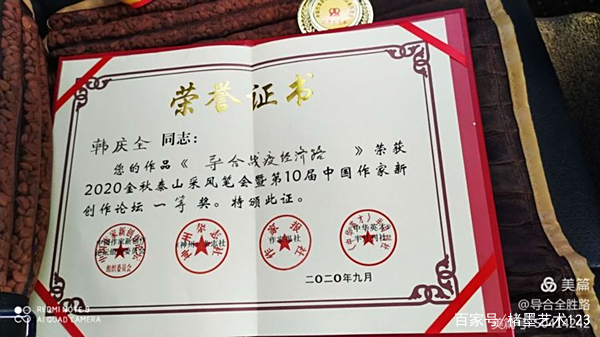 荣誉证书
韩庆全 同志：
您的作品《 导合战疫经济路 》荣获
2020金秋泰山采风笔会暨第10届中国作家新
创作论坛 一等 奖。特颁此证。
组织委员会
作家报社
二〇二〇年九月
REDMI NOTE 8
AI QUAD CAMERA
美篇
@导合全胜路
百家号/楮墨艺术123